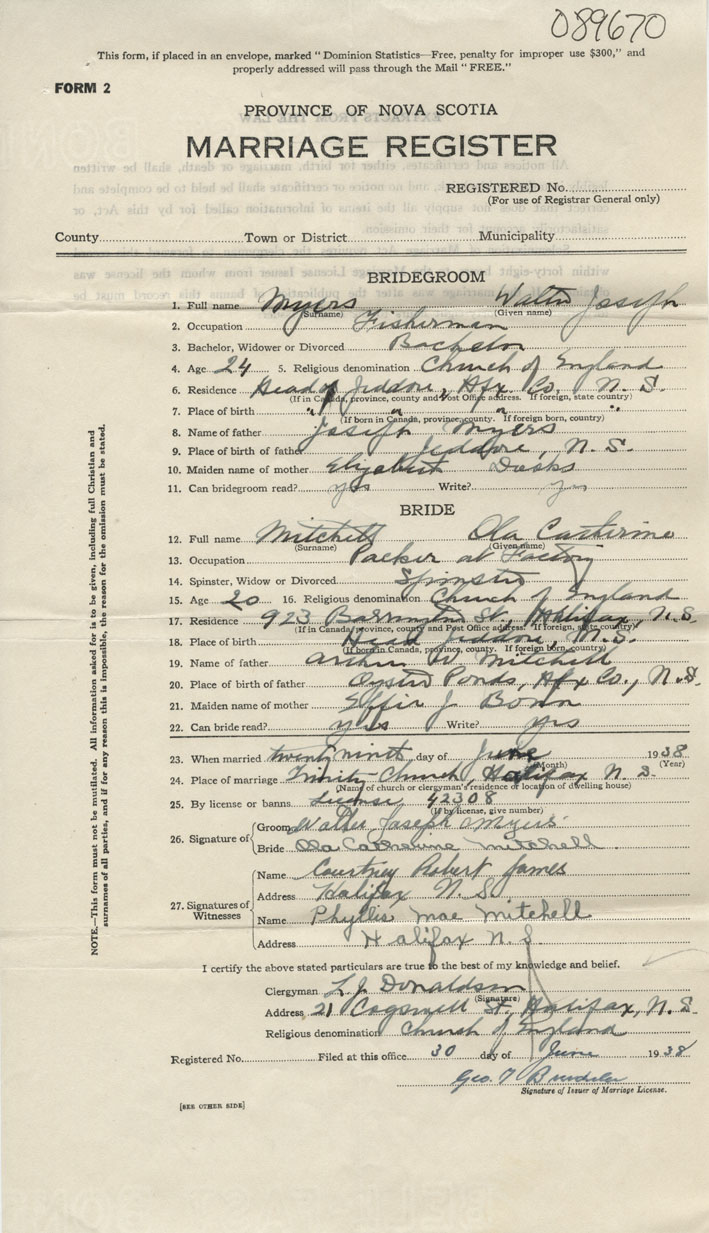 089670
This form, if placed in an envelope, marked "Dominion Statistics—Free, penalty for improper use $300," and
properly addressed will pass through the Mail "FREE."
FORM 2
PROVINCE OF NOVA SCOTIA
MARRIAGE REGISTER
REGISTERED No.
(For use of Registrar General only)
County Town or District Municipality
BRIDEGROOM
1. Full name Myers Walter Joseph
(Surname) (Given name)
2. Occupation Fisherman
3. Bachelor, Widower or Divorced Bachelor
4. Age 24 5. Religious denomination Church of England
6. Residence Head of Jeddore, Hfx Co. N. S.
(If in Canada, province, county and Post Office address. If foreign, state country)
7. Place of birth " " " "
(If born in Canada, province, county. If foreign born, country)
8. Name of father Joseph Myers
9. Place of birth of father Jeddore, N. S.
10. Maiden name of mother Elizabeth
11. Can bridegroom read? yes Write? yes
BRIDE
12. Full name Mitchell Ola Catherine
(Surname) (Given name)
13. Occupation Packer at Factory
14. Spinster, Widow or Divorced Spinster
15. Age 20 16. Religious denomination Church of England
17. Residence 923 Barrington St., Halifax, N. S.
(If in Canada, province, county and Post Office address. If foreign, state country)
18. Place of birth Head Jeddore, N. S.
(If born in Canada, province, county. If foreign born, country)
19. Name of father Arthur W Mitchell
20. Place of birth of father Oyster Ponds, Hfx Co., N. S.
21. Maiden name of mother Effie J
22. Can bride read? yes Write? yes
23. When married twenty ninth day of June 1938
(Month) (Year)
24. Place of marriage Trinity Church, Halifax N. S.
(Name of church or clergyman's residence or location of dwelling house)
25. By license or banns License 42308
(If by license, give number)
26. Signature of Groom Walter Joseph Myers
Bride Ola Catherine Mitchell
27. Signatures of Witnesses
Name Courtney Robert James
Address Halifax N. S.
Name Phyllis Mae Mitchell
Address Halifax N. S.
I certify the above stated particulars are true to the best of my knowledge and belief.
Clergyman L. J. Donaldson
(Signature)
Address 21 Cogswell St., Halifax, N. S.
Religious denomination Church of England
Registered No. Filed at this office 30 day of June 1938
Geo. T
Signature of Issuer of Marriage License.
[SEE OTHER SIDE]
NOTE.—This form must not be mutilated. All information asked for is to be given, including full Christian and
surnames of all parties, and if for any reason this is impossible, the reason for the omission must be stated.